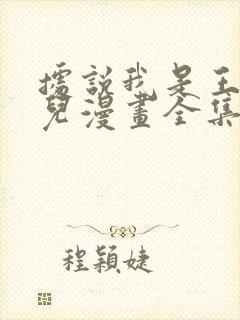 據說我是王
兒漫畫全集
程穎婕